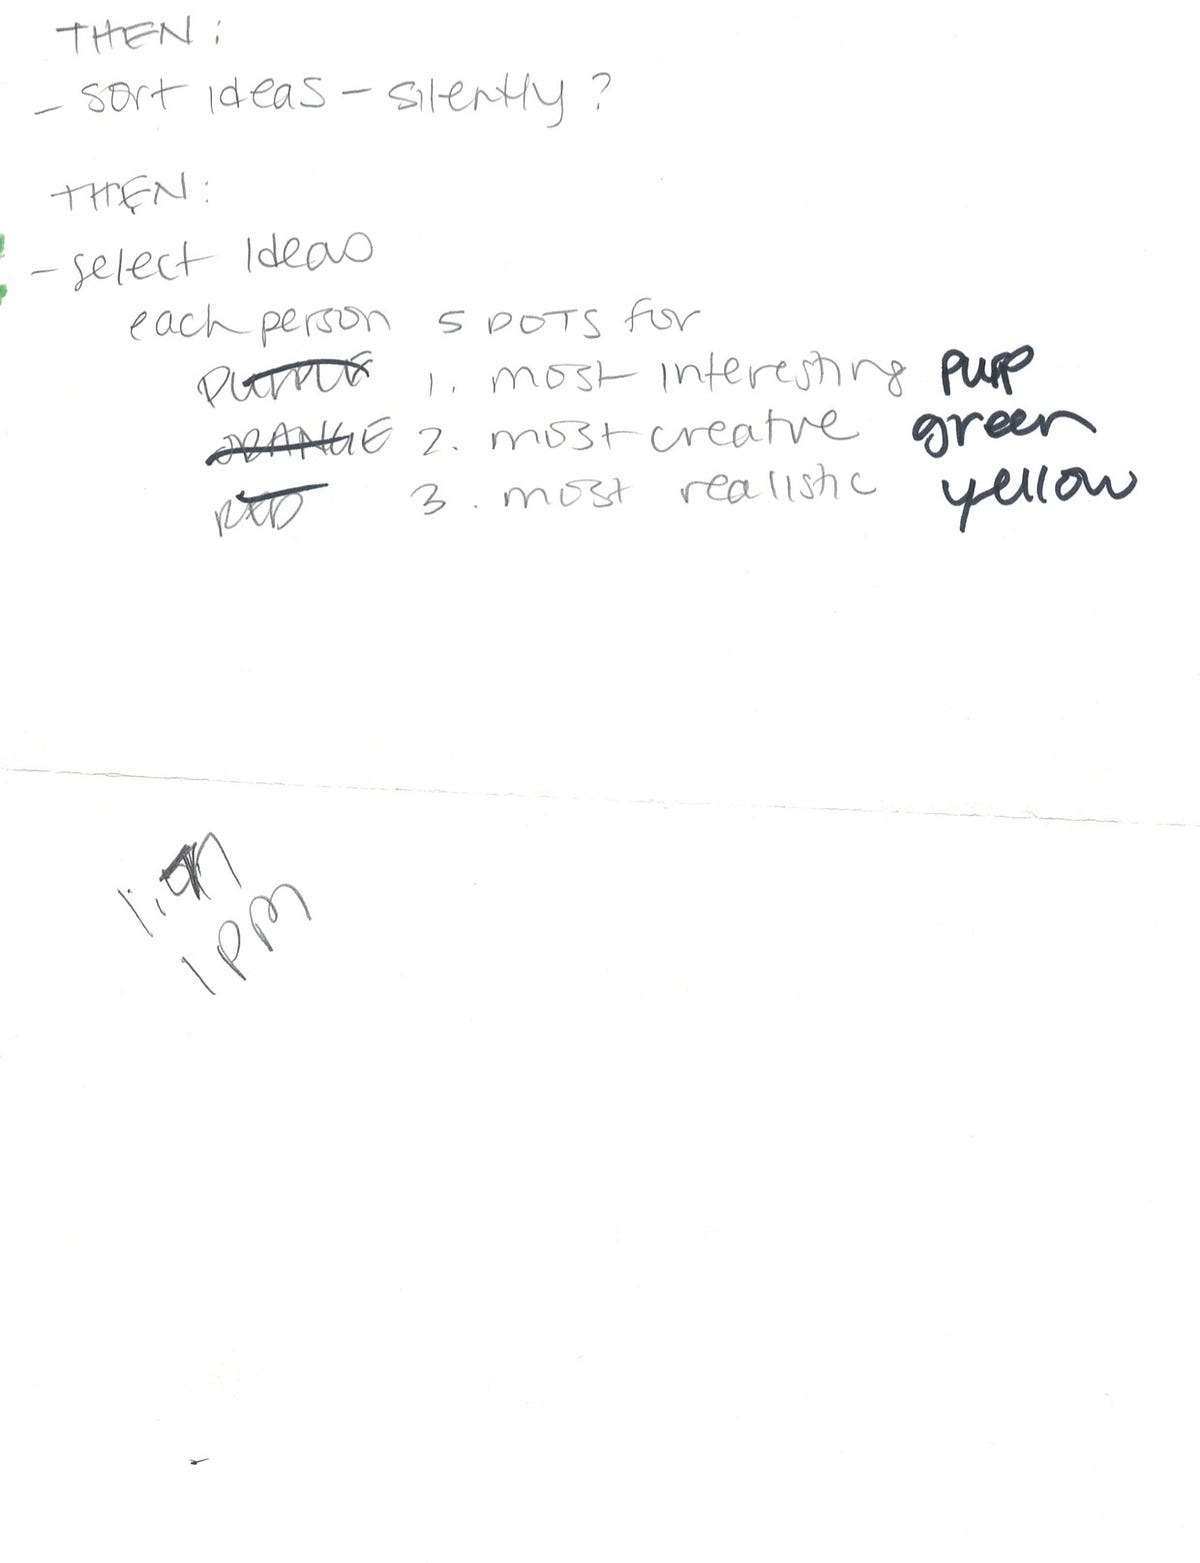 THEN:
- sort ideas - silently?
THEN:
- select ideas
each person 5 DOTS for
PURPLE 1. most interesting purp
ORANGE 2. most creatve green
RED 3. most realistic yellow
1 PM